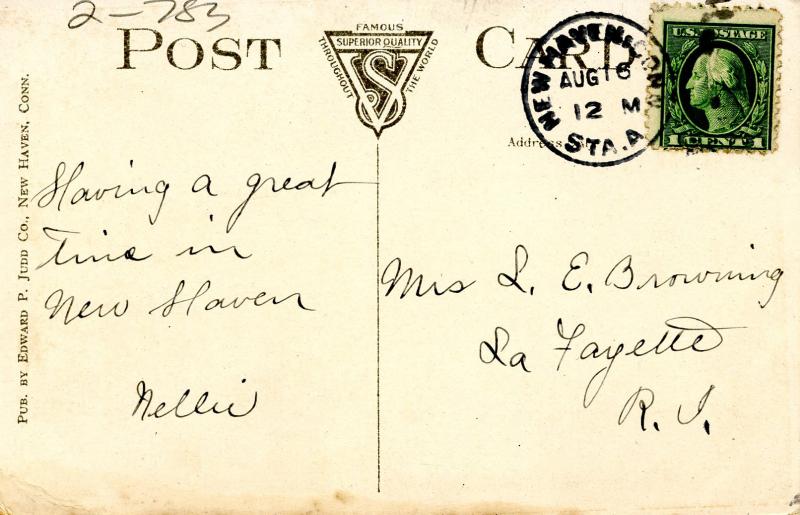 2-783
POST CARD
FAMOUS
SUPERIOR QUALITY
THROUGHOUT
THE WORLD
VS
NEW HAVEN, CONN.
AUG 16
12 M
STA. A
U.S. POSTAGE
1 CENT 1
Address
Having a great
time in
New Haven
Nellie
Mrs L. E. Browning
La Fayette
R. I.
PUB. BY EDWARD P. JUDD CO., NEW HAVEN, CONN.